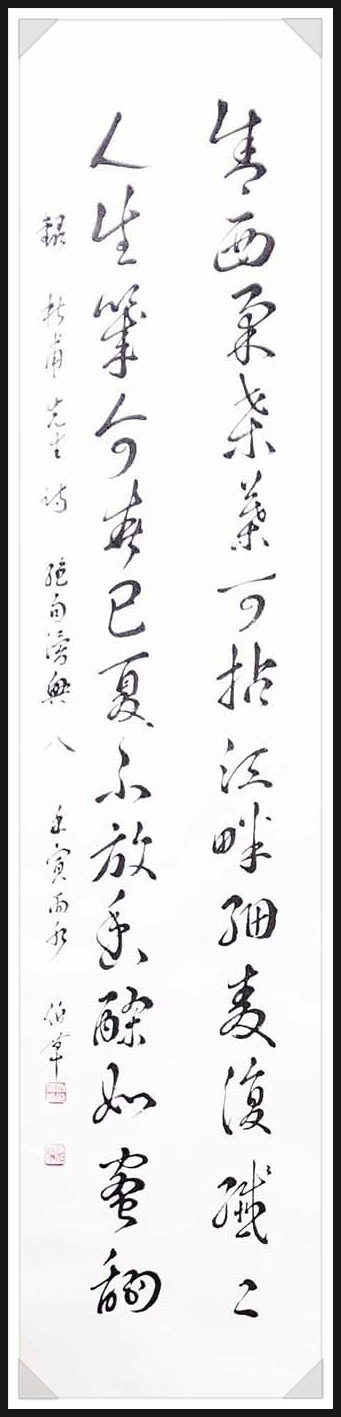 舍西柔桑葉可拈江畔細麥復纖〻
人生幾何春已夏不放香醪如蜜甜
錄 杜甫先生詩 絕句漫興 八 壬寅雨水 伯